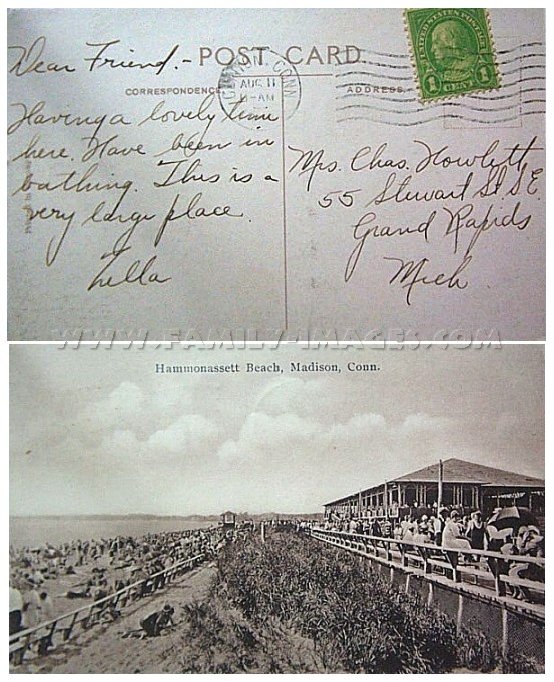 POST CARD.
CORRESPONDENCE
ADDRESS.
UNITED STATES POSTAGE
1 CENT 1
CONN
AUG 11
AM
Dear Friend.-
Having a lovely time
here. Have been in
bathing. This is a
very large place.
Lella
Mrs. Chas. Howlett,
55 Stewart St S.E.
Grand Rapids
Mich.
WWW.FAMILY-IMAGES.COM
Hammonassett Beach, Madison, Conn.